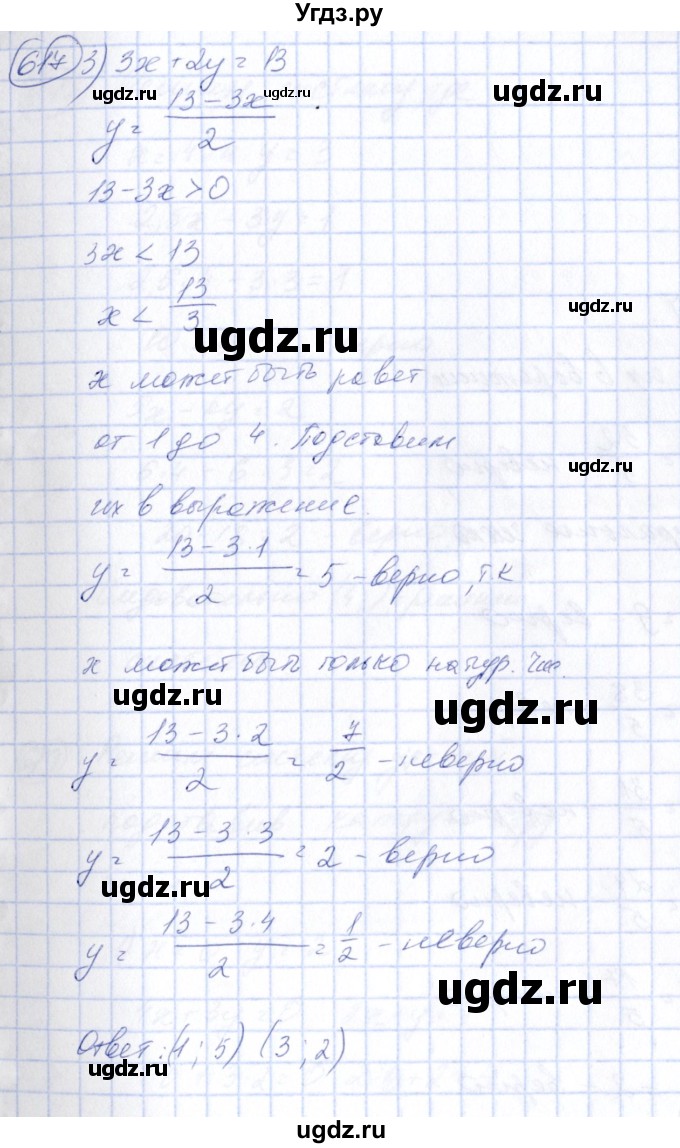 Угдз.ру
617 3) 3x + 2y = 13
ugdz.ru ugdz.ru ugdz.ru
y = (13 - 3x)/2 .
13 - 3x > 0
3x < 13
x < 13/3
ugdz.ru
ugdz.ru
x может быть равет
от 1 до 4. Подставим
ugdz.ru
их в выражение.
y = (13 - 3·1)/2 = 5 - верно, тк
ugdz.ru
x может быть только натур. чис.
ugdz.ru ugdz.ru
y = (13 - 3·2)/2 = 7/2 - неверно
y = (13 - 3·3)/2 = 2 - верно
ugdz.ru
y = (13 - 3·4)/2 = 1/2 - неверно
ugdz.ru
Ответ: (1; 5) (3; 2)
ugdz.ru
ugdz.ru
ugdz.ru